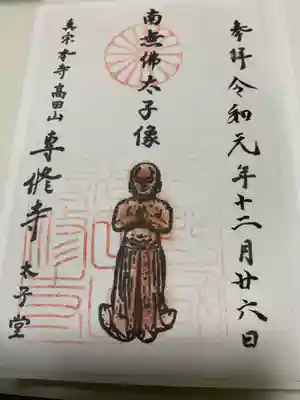 奉拝 令和元年十二月廿六日
南無佛太子像
真宗本寺高田山
専修寺 太子堂